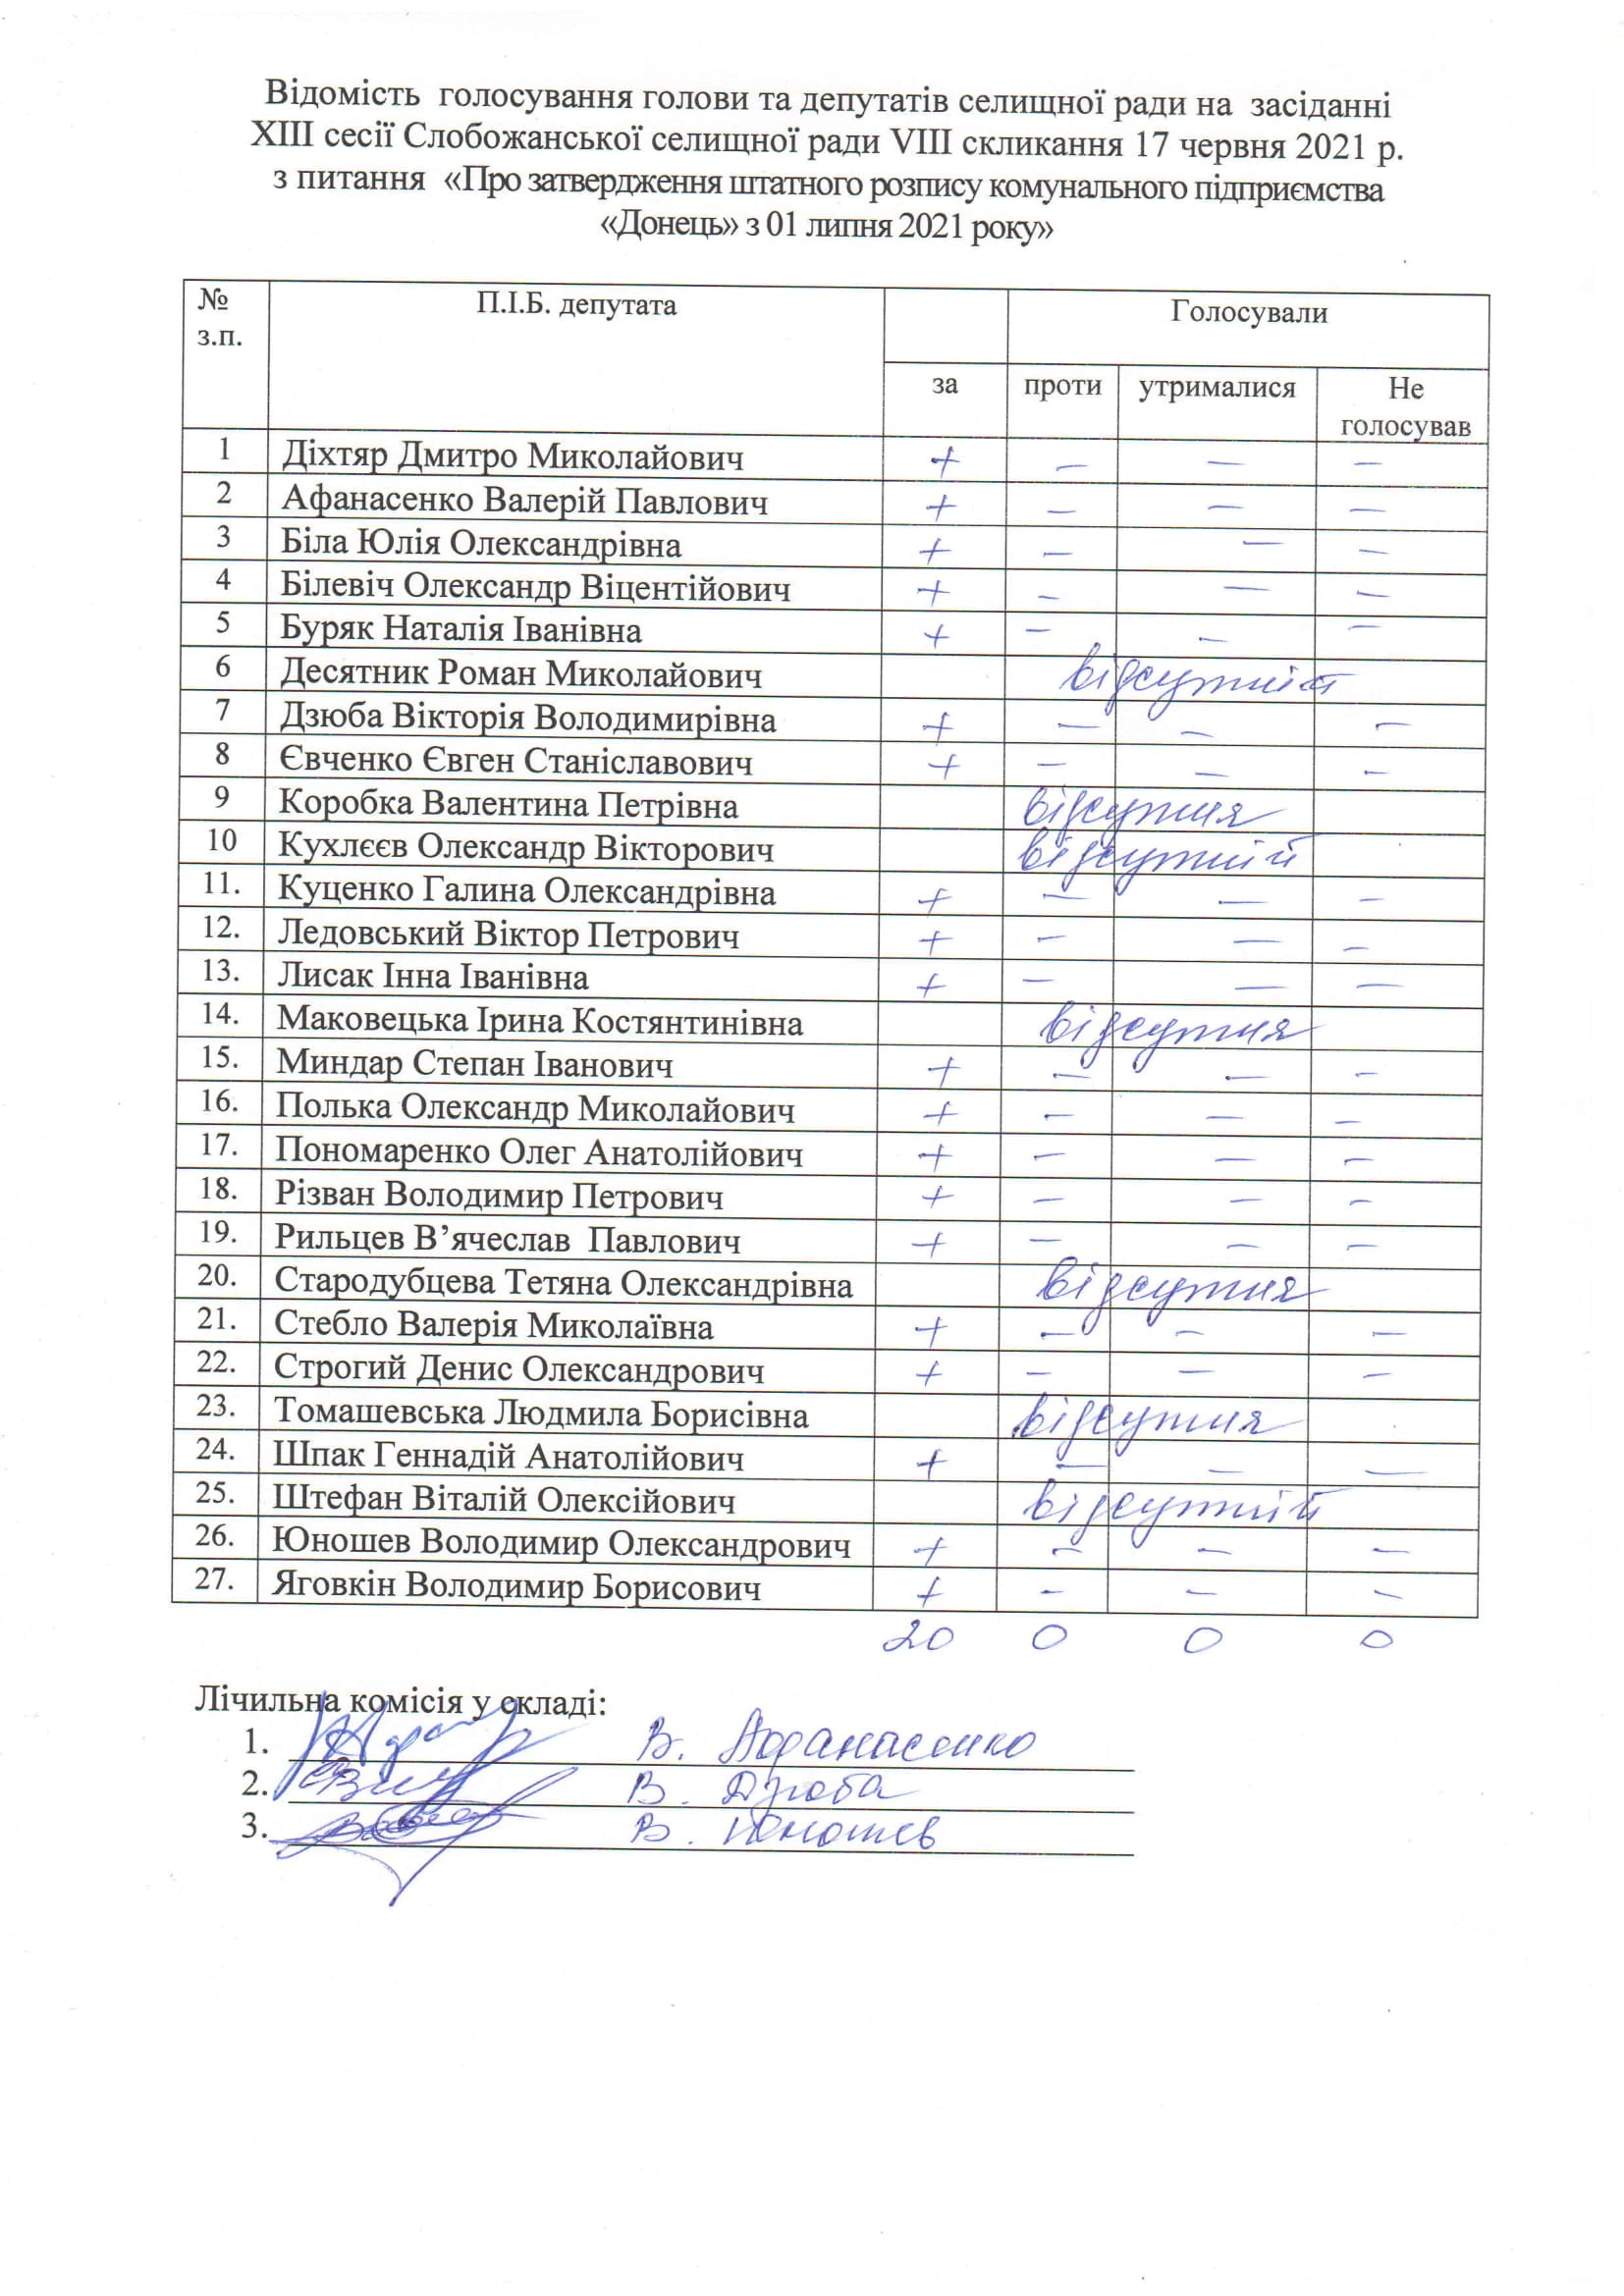 Відомість голосування голови та депутатів селищної ради на засіданні
XIII сесії Слобожанської селищної ради VIII скликання 17 червня 2021 р.
з питання «Про затвердження штатного розпису комунального підприємства
«Донець» з 01 липня 2021 року»
№ П.І.Б. депутата Голосували
з.п.
за проти утрималися Не
голосував
1 Діхтяр Дмитро Миколайович + – – –
2 Афанасенко Валерій Павлович + – – –
3 Біла Юлія Олександрівна + – – –
4 Білевіч Олександр Віцентійович + – – –
5 Буряк Наталія Іванівна + – – –
6 Десятник Роман Миколайович відсутній
7 Дзюба Вікторія Володимирівна + – – –
8 Євченко Євген Станіславович + – – –
9 Коробка Валентина Петрівна відсутня
10 Кухлєєв Олександр Вікторович відсутній
11. Куценко Галина Олександрівна + – – –
12. Ледовський Віктор Петрович + – – –
13. Лисак Інна Іванівна + – – –
14. Маковецька Ірина Костянтинівна відсутня
15. Миндар Степан Іванович + – – –
16. Полька Олександр Миколайович + – – –
17. Пономаренко Олег Анатолійович + – – –
18. Різван Володимир Петрович + – – –
19. Рильцев В’ячеслав Павлович + – – –
20. Стародубцева Тетяна Олександрівна відсутня
21. Стебло Валерія Миколаївна + – – –
22. Строгий Денис Олександрович + – – –
23. Томашевська Людмила Борисівна відсутня
24. Шпак Геннадій Анатолійович + – – –
25. Штефан Віталій Олексійович відсутній
26. Юношев Володимир Олександрович + – – –
27. Яговкін Володимир Борисович + – – –
20 0 0 0
Лічильна комісія у складі:
1. В. Афанасенко
2. В. Дзюба
3. В. Юношев